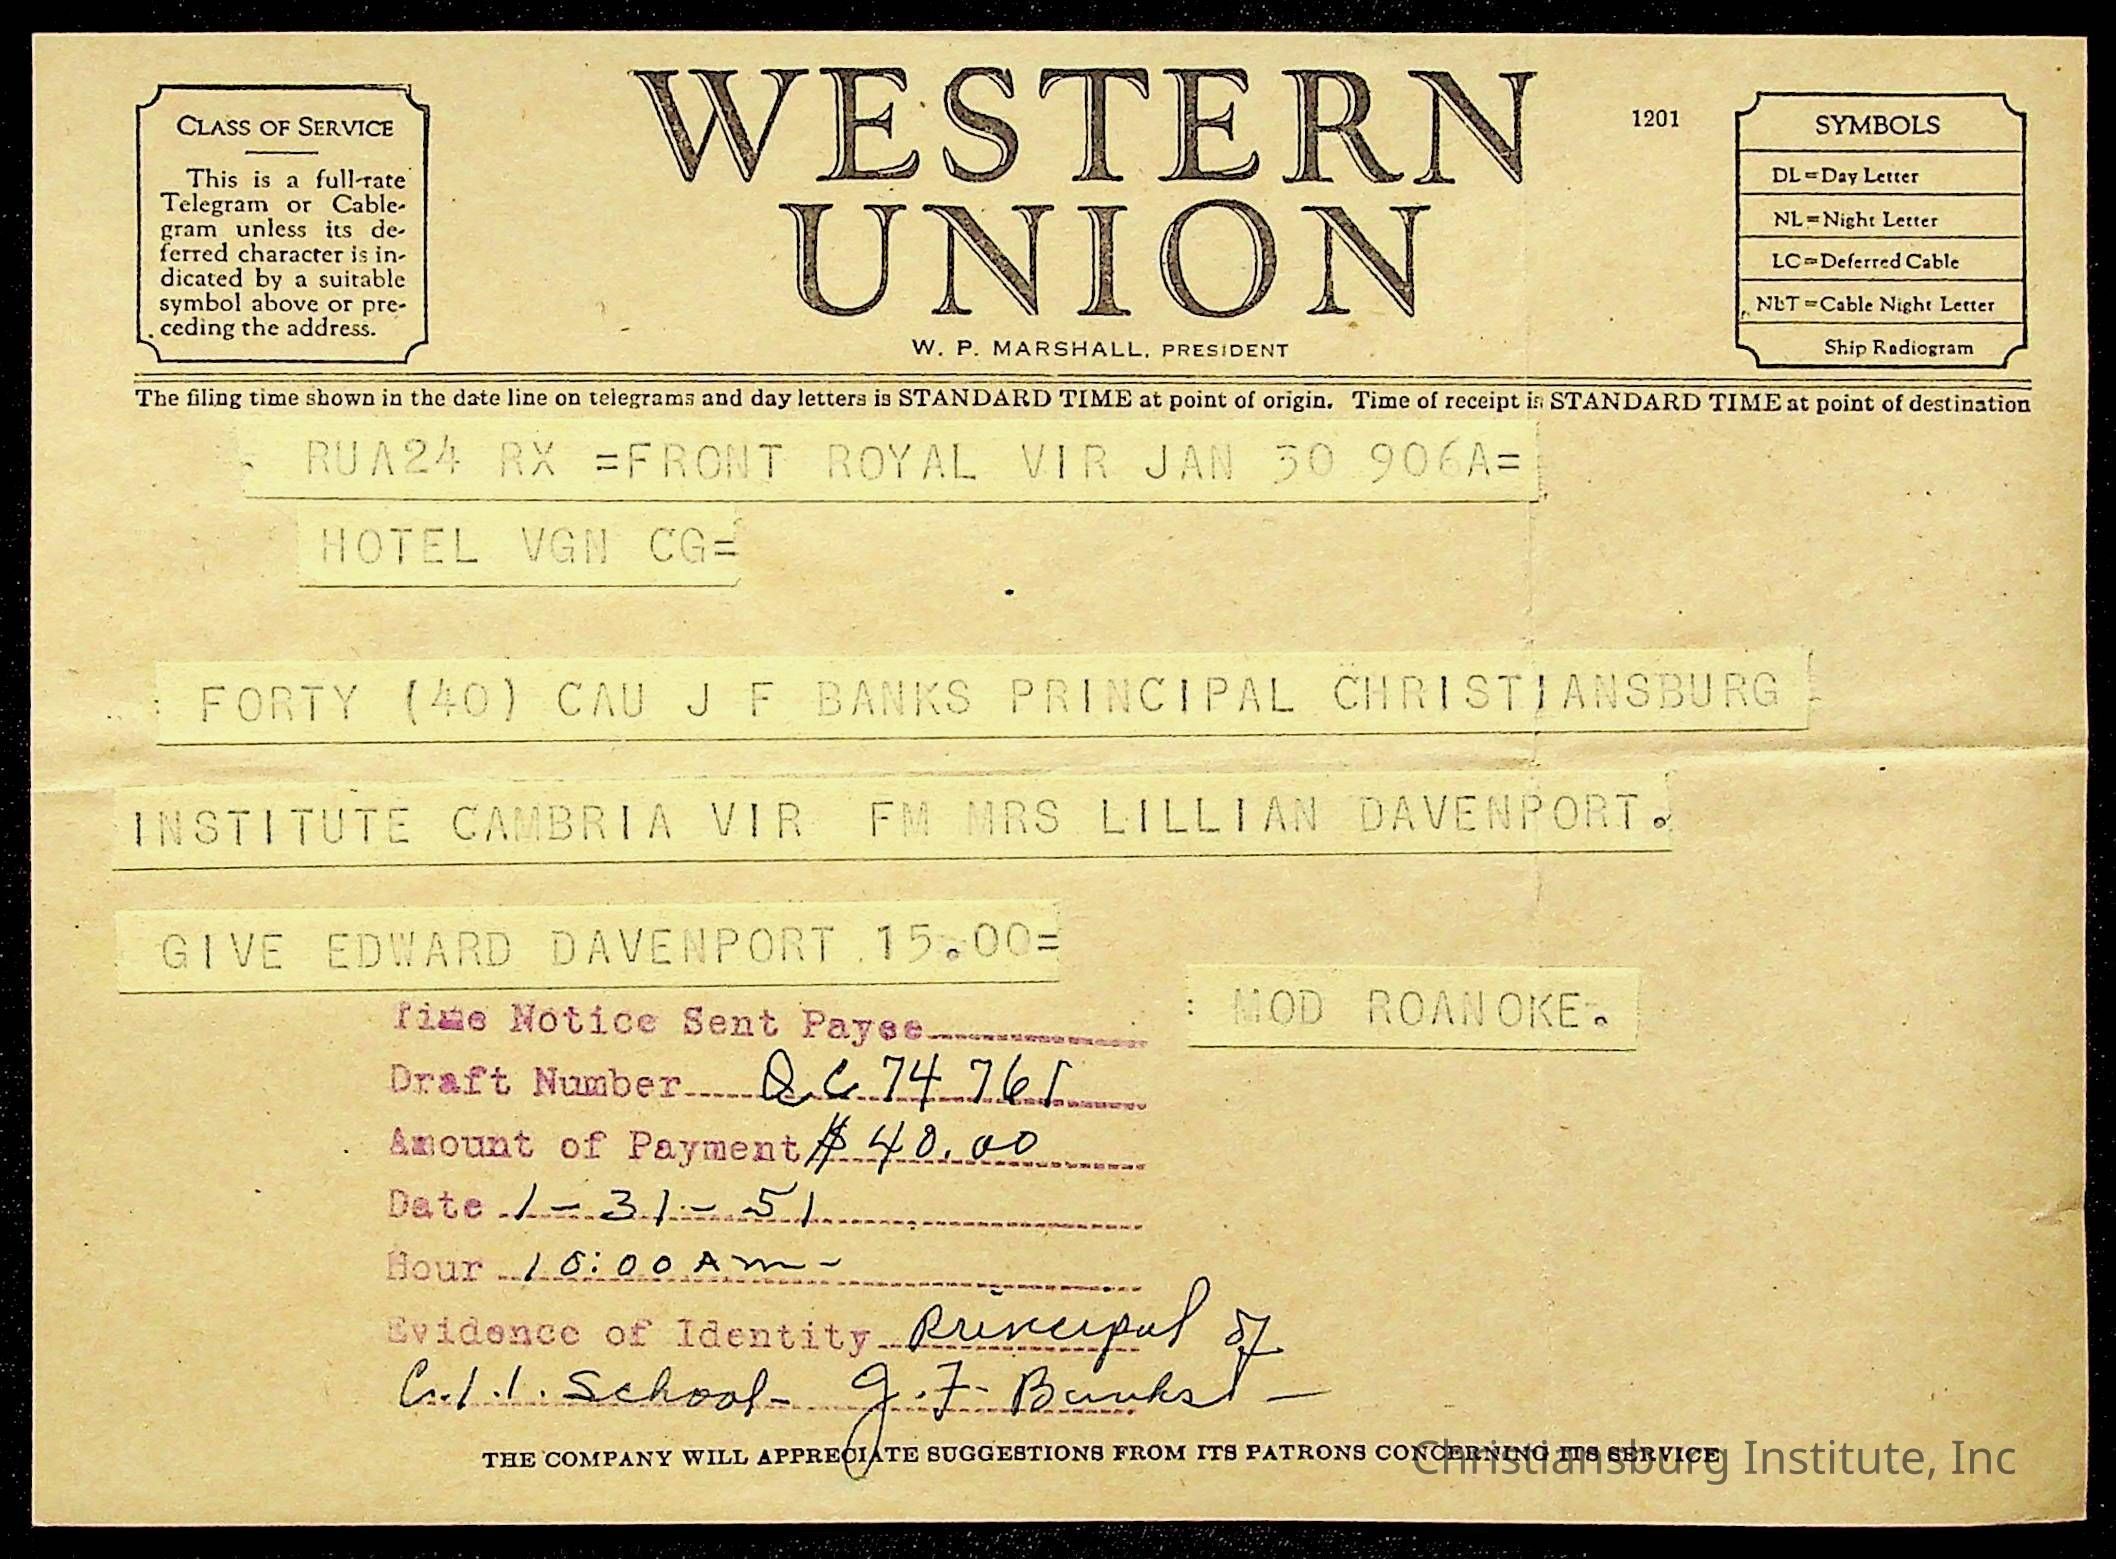 CLASS OF SERVICE
This is a full-rate
Telegram or Cable-
gram unless its de-
ferred character is in-
dicated by a suitable
symbol above or pre-
ceding the address.
WESTERN
UNION
W. P. MARSHALL, PRESIDENT
1201
SYMBOLS
DL=Day Letter
NL=Night Letter
LC=Deferred Cable
NLT=Cable Night Letter
Ship Radiogram
The filing time shown in the date line on telegrams and day letters is STANDARD TIME at point of origin. Time of receipt is STANDARD TIME at point of destination
RUA24 RX =FRONT ROYAL VIR JAN 30 906A=
HOTEL VGN CG=
FORTY (40) CAU J F BANKS PRINCIPAL CHRISTIANSBURG
INSTITUTE CAMBRIA VIR FM MRS LILLIAN DAVENPORT.
GIVE EDWARD DAVENPORT 15.00=
MOD ROANOKE.
Time Notice Sent Payee
Draft Number 74 761
Amount of Payment $ 40.00
Date 1-31-51
Hour 10:00 AM-
Evidence of Identity Principal of
C.I.I. School- J.F. Banks -
THE COMPANY WILL APPRECIATE SUGGESTIONS FROM ITS PATRONS CONCERNING ITS SERVICE
Christiansburg Institute, Inc